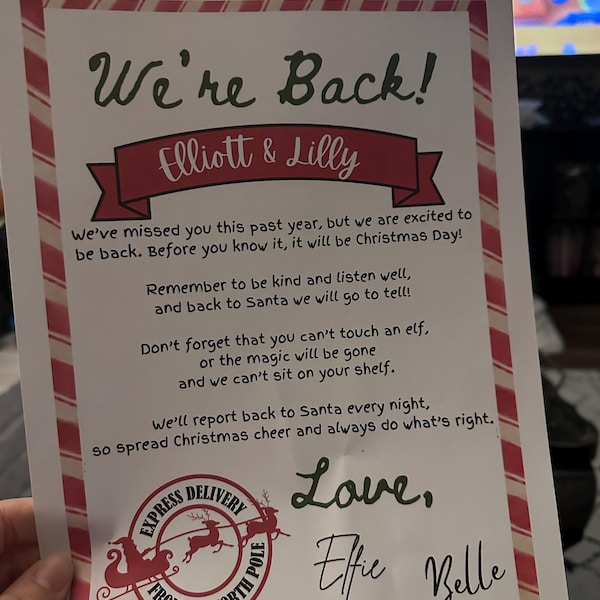 We're Back!
Elliott & Lilly
We've missed you this past year, but we are excited to
be back. Before you know it, it will be Christmas Day!
Remember to be kind and listen well,
and back to Santa we will go to tell!
Don't forget that you can't touch an elf,
or the magic will be gone
and we can't sit on your shelf.
We'll report back to Santa every night,
so spread Christmas cheer and always do what's right.
Love,
Elfie
Belle
EXPRESS DELIVERY
NORTH POLE